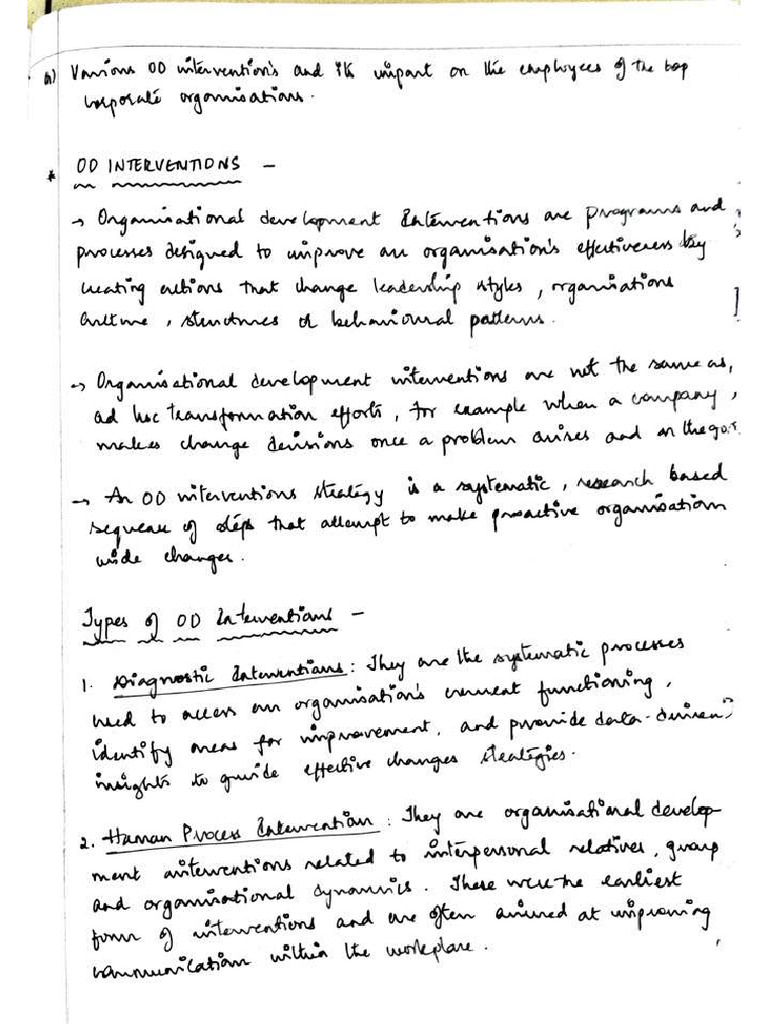 Q) Various OD intervention's and its impact on the employees of the top
corporate organisations.
* OD INTERVENTIONS -
→ Organisational development Interventions are programs and
processes designed to improve an organisation's effectiveness by
creating actions that change leadership styles, organisations
culture, structures or behavioural patterns.
→ Organisational development interventions are not the same as,
ad hoc transformation efforts, for example when a company,
makes change decisions once a problem arises and on the go.
→ An OD interventions strategy is a systematic, research based
sequence of steps that attempt to make proactive organisation
wide changes.
Types of OD Interventions -
1. Diagnostic Interventions: They are the systematic processes
used to access an organisation's current functioning,
identify areas for improvement, and provide data-driven
insights to guide effective changes strategies.
2. Human Process Intervention: They are organisational develop-
ment interventions related to interpersonal relatives, group
and organisational dynamics. These were the earliest
form of interventions and are often aimed at improving
communication within the workplace.